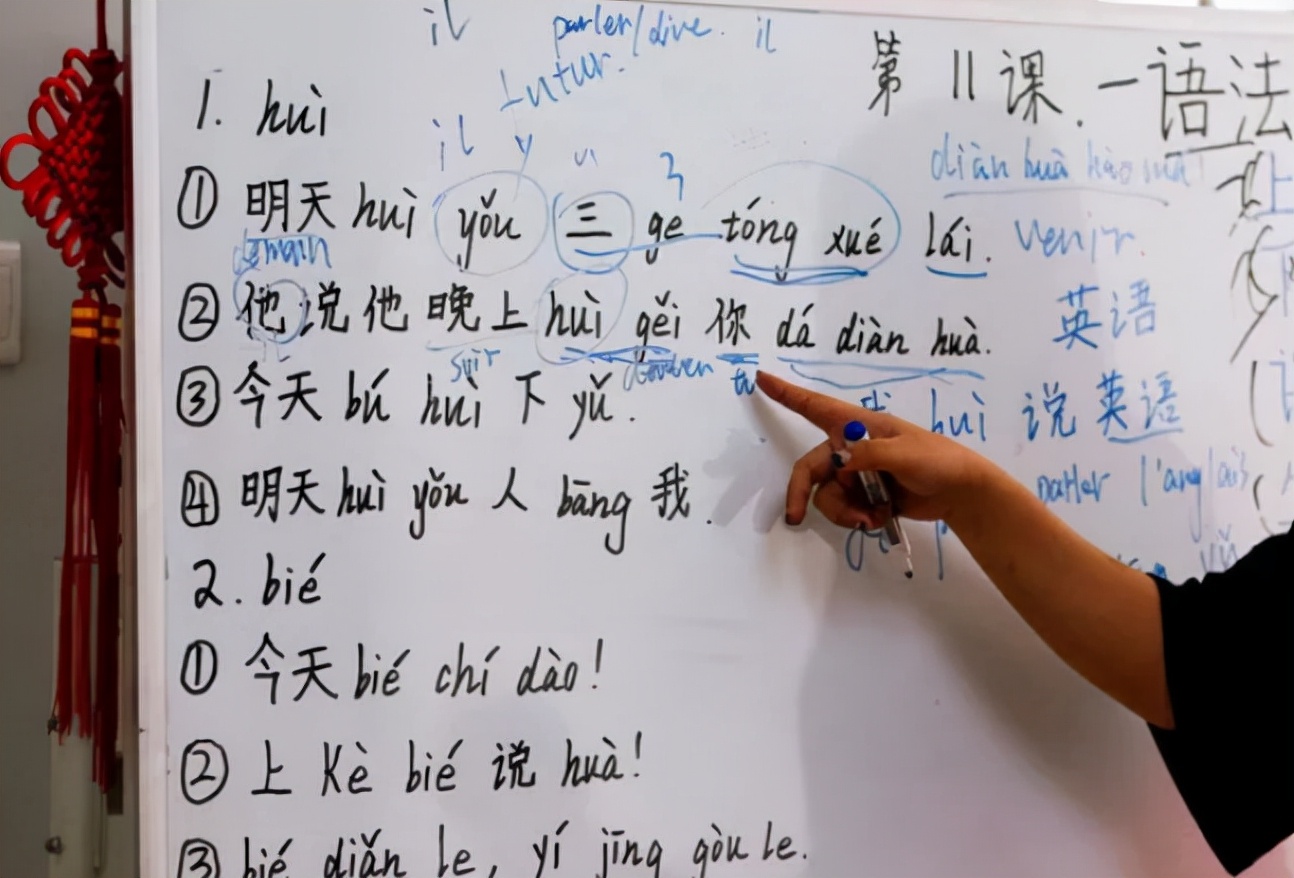 il parler/dire. il
futur.
第11课.一语法
1. huì
il y
diàn huà hào mǎ
① 明天 huì yǒu 三 ge tóng xué lái. venir.
demain
② 他说他晚上 huì gěi 你 dá diàn huà. 英语
soir tu
③ 今天 bú huì 下 yǔ. huì 说英语
④ 明天 huì yǒu 人 bāng 我. parler l'anglais
2. bié
① 今天 bié chí dào!
② 上 Kè bié 说 huà!
③ bié diǎn le, yí jīng gòu le.